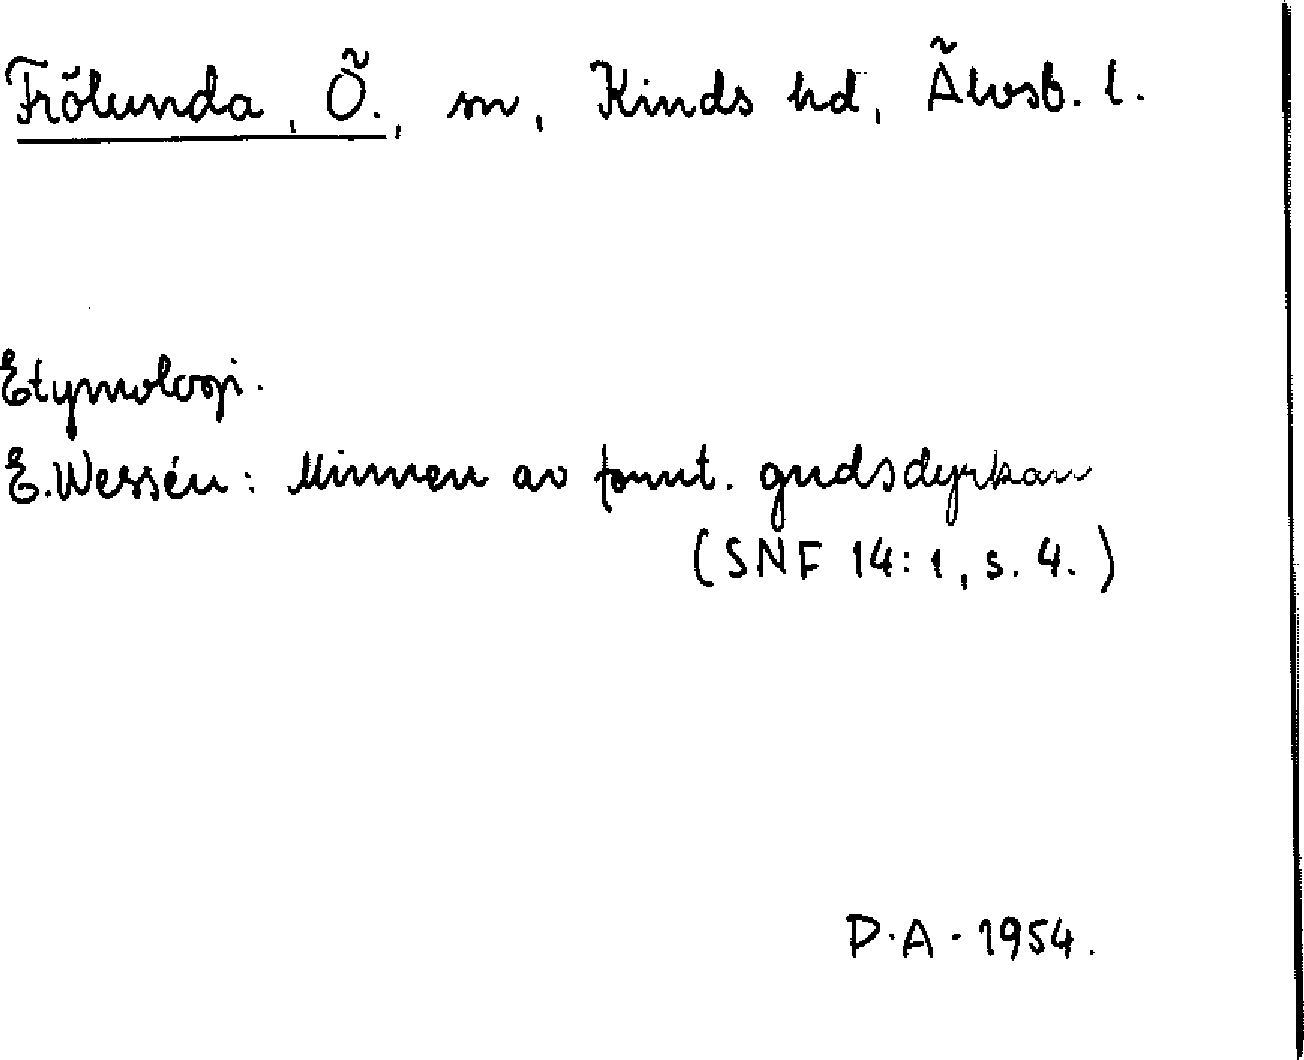 Frölunda, Ö., sn, Kinds hd, Älvsb. l.
Etymologi.
E. Wessén: Minnen av fornt. gudsdyrkan
(SNF 14:1, s. 4.)
P.A. 1954.